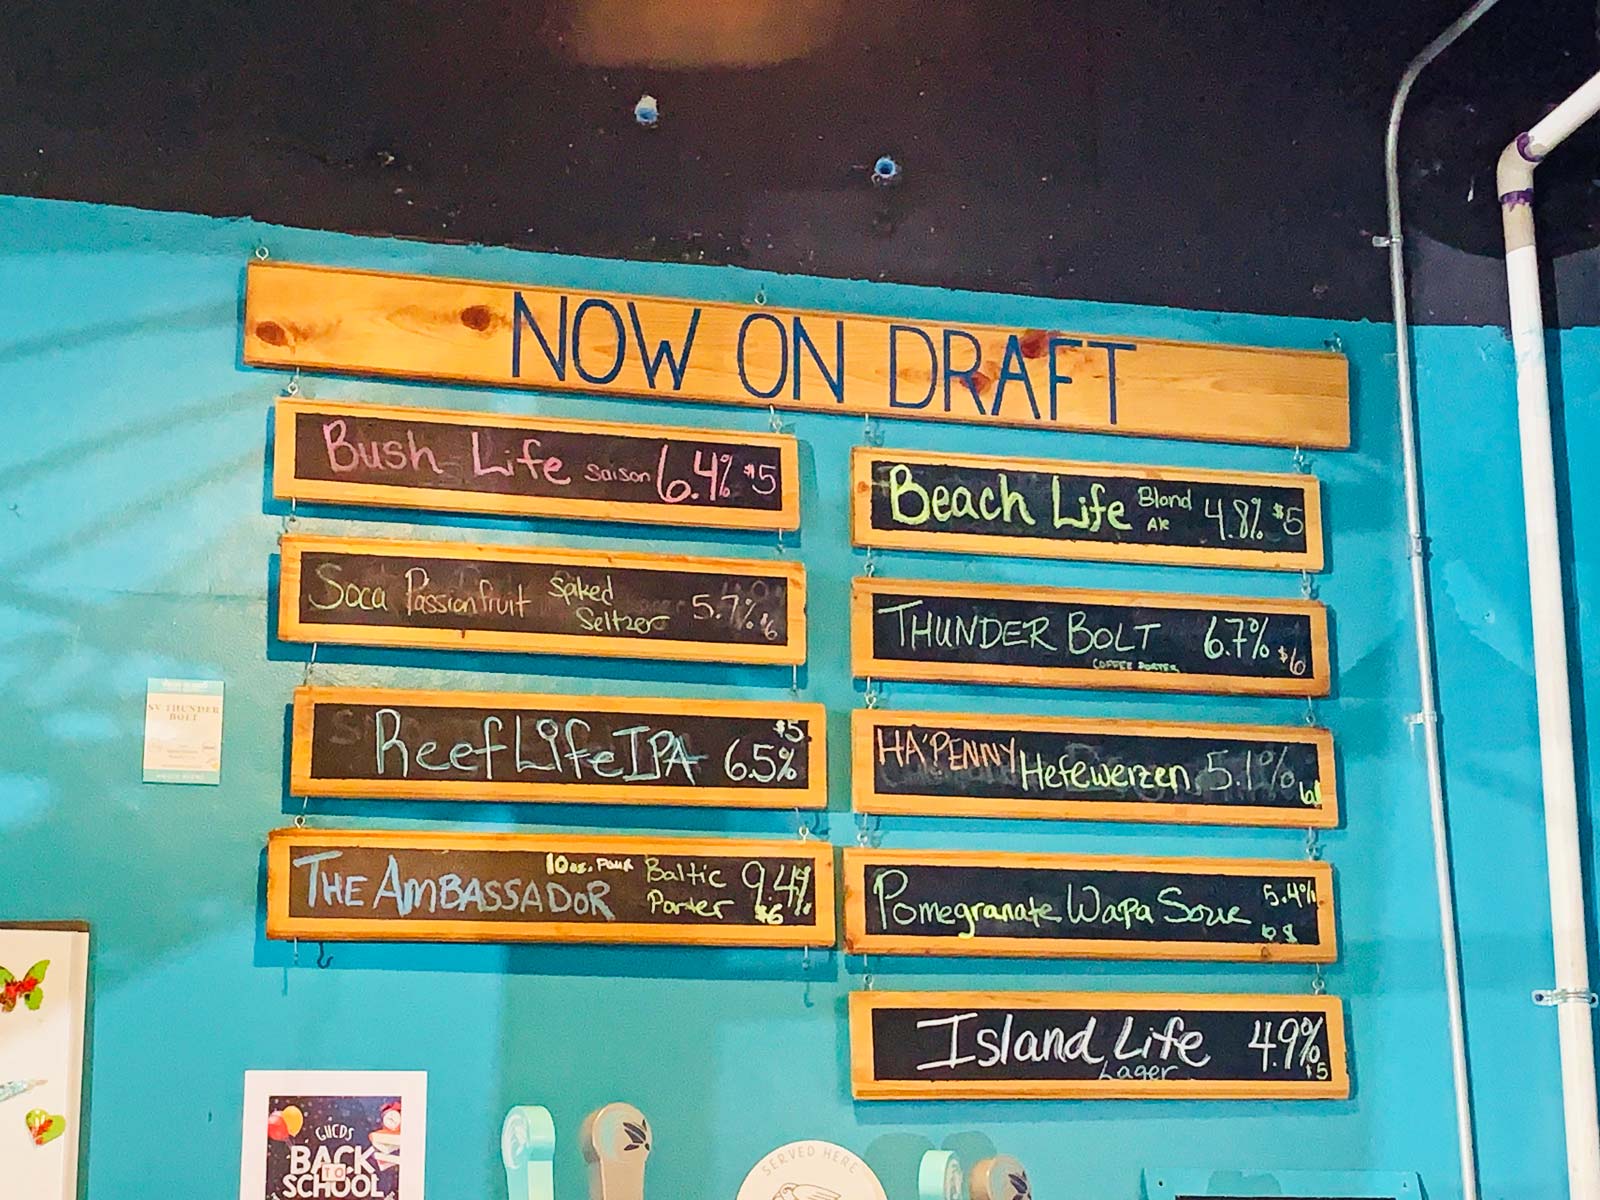 NOW ON DRAFT
Bush Life Saison 6.4% $5
Soca Passionfruit Spiked Seltzer 5.7% $6
Reef Life IPA 6.5% $5
THE AMBASSADOR 10oz. Pour Baltic Porter 9.4% $6
Beach Life Blond Ale 4.8% $5
THUNDER BOLT COFFEE PORTER 6.7% $6
HA'PENNY Hefewerzen 5.1%
Pomegranate Wapa Sour 5.4%
Island Life Lager 4.9% $5
SV THUNDER
BOLT
GHCDS
BACK
TO
SCHOOL
SERVED HERE